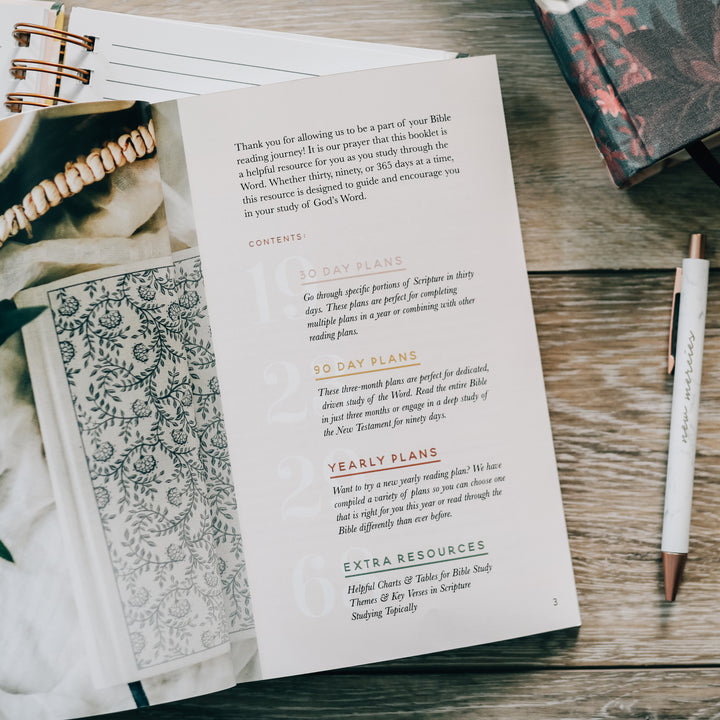 Thank you for allowing us to be a part of your Bible
reading journey! It is our prayer that this booklet is
a helpful resource for you as you study through the
Word. Whether thirty, ninety, or 365 days at a time,
this resource is designed to guide and encourage you
in your study of God's Word.
CONTENTS:
19
30 DAY PLANS
Go through specific portions of Scripture in thirty
days. These plans are perfect for completing
multiple plans in a year or combining with other
reading plans.
90 DAY PLANS
These three-month plans are perfect for dedicated,
driven study of the Word. Read the entire Bible
in just three months or engage in a deep study of
the New Testament for ninety days.
YEARLY PLANS
Want to try a new yearly reading plan? We have
compiled a variety of plans so you can choose one
that is right for you this year or read through the
Bible differently than ever before.
EXTRA RESOURCES
Helpful Charts & Tables for Bible Study
Themes & Key Verses in Scripture
Studying Topically
3
new mercies